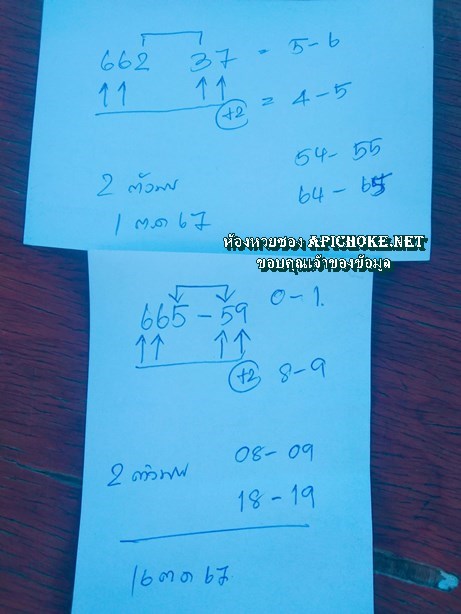 662 37 = 5-6
+2 = 4-5
54- 55
64 - 65
2 ตัวบน
1 ตค 67
ห้องหวยซอง APICHOKE.NET
ขอบคุณเจ้าของข้อมูล
665 - 59 0-1.
+2 8-9
2 ตัวบน 08- 09
18 - 19
16 ตค 67